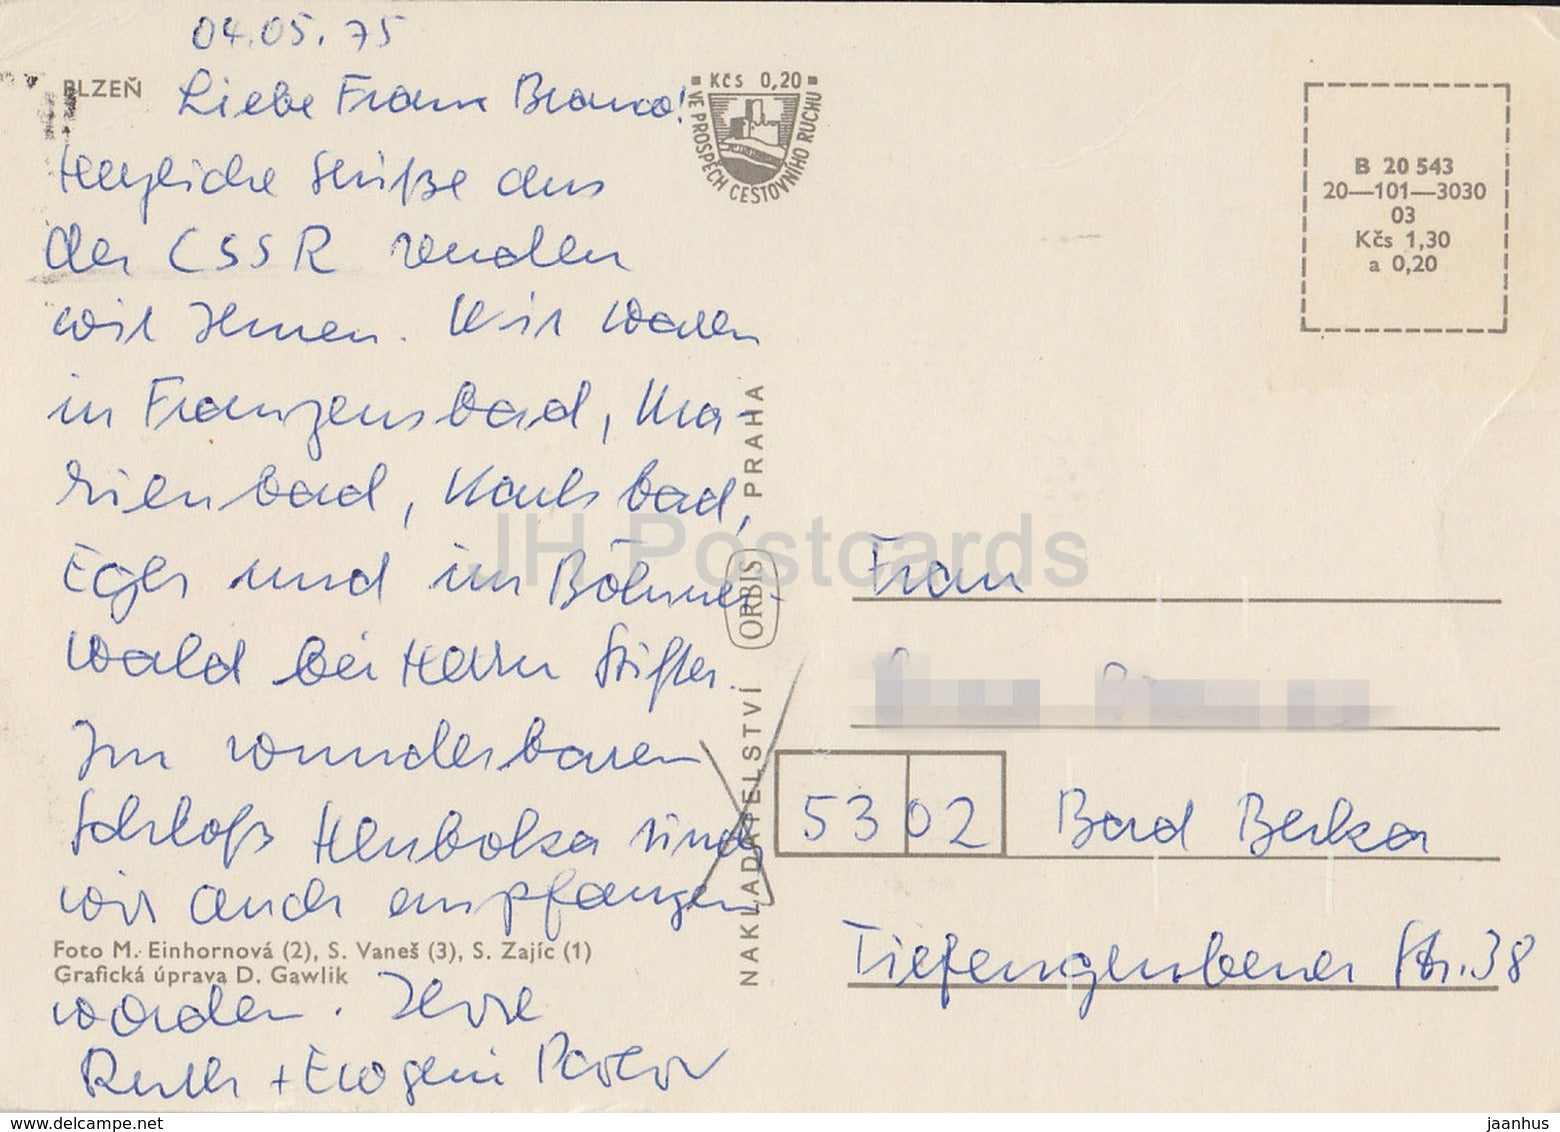 04.05.75
PLZEŇ
Liebe Frau Branco!
Herzliche Grüße aus
der CSSR senden
wir Ihnen. Wir waren
in Franzensbad, Ma-
rienbad, Karlsbad,
Eger und im Böhmer-
wald bei Herrn Stifter.
Im wunderbaren
Schloß Hluboka sind
wir auch empfangen
Foto M. Einhornová (2), S. Vaneš (3), S. Zajíc (1)
Grafická úprava D. Gawlik
worden. Ihre
Ruth + Evogeni
Kčs 0,20
VE PROSPĚCH CESTOVNÍHO RUCHU
NAKLADATELSTVÍ ORBIS PRAHA
B 20 543
20—101—3030
03
Kčs 1,30
a 0,20
Frau
5302 Bad Berka
Tiefengrubener Str. 38
JH Postcards
https://www.delcampe.net
jaanhus